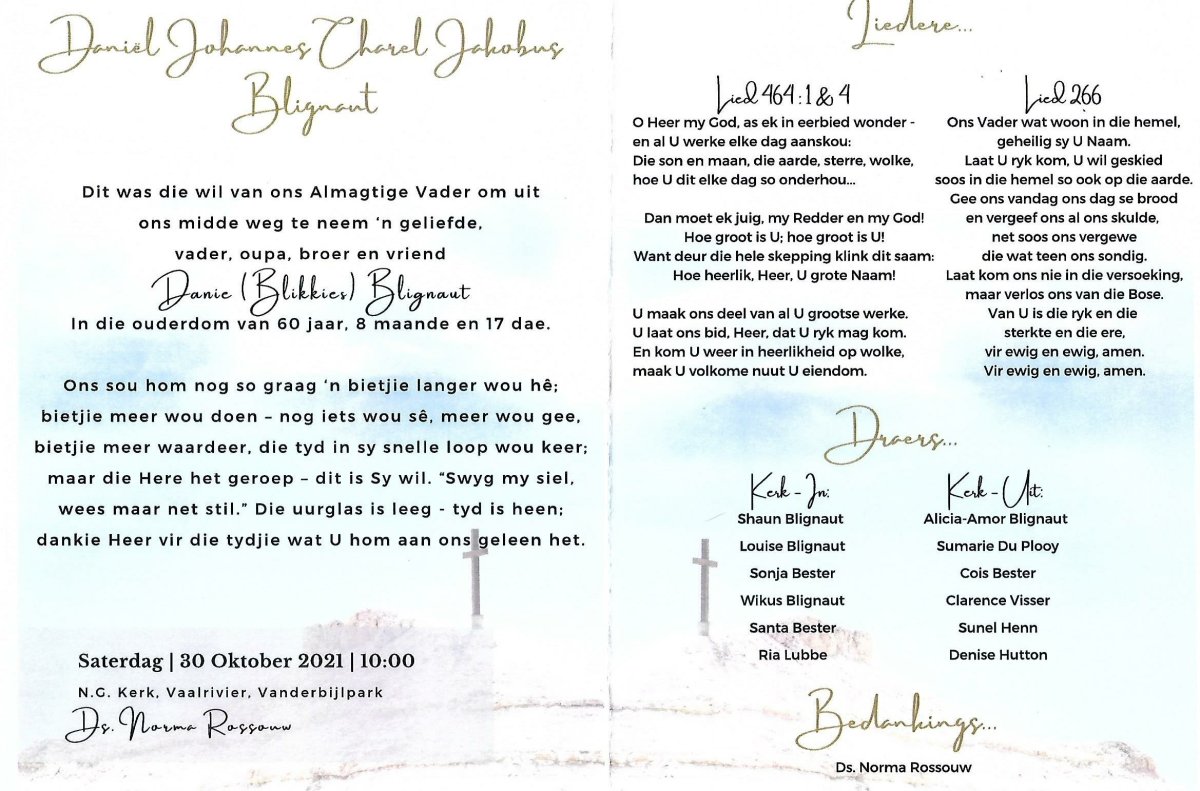 Daniël Johannes Charel Jakobus
Blignaut
Dit was die wil van ons Almagtige Vader om uit
ons midde weg te neem ‘n geliefde,
vader, oupa, broer en vriend
Danie (Blikkies) Blignaut
In die ouderdom van 60 jaar, 8 maande en 17 dae.
Ons sou hom nog so graag ‘n bietjie langer wou hê;
bietjie meer wou doen – nog iets wou sê, meer wou gee,
bietjie meer waardeer, die tyd in sy snelle loop wou keer;
maar die Here het geroep – dit is Sy wil. “Swyg my siel,
wees maar net stil.” Die uurglas is leeg - tyd is heen;
dankie Heer vir die tydjie wat U hom aan ons geleen het.
Saterdag | 30 Oktober 2021 | 10:00
N.G. Kerk, Vaalrivier, Vanderbijlpark
Ds. Norma Rossouw
Liedere...
Lied 464 : 1 & 4
O Heer my God, as ek in eerbied wonder -
en al U werke elke dag aanskou:
Die son en maan, die aarde, sterre, wolke,
hoe U dit elke dag so onderhou...
Dan moet ek juig, my Redder en my God!
Hoe groot is U; hoe groot is U!
Want deur die hele skepping klink dit saam:
Hoe heerlik, Heer, U grote Naam!
U maak ons deel van al U grootse werke.
U laat ons bid, Heer, dat U ryk mag kom.
En kom U weer in heerlikheid op wolke,
maak U volkome nuut U eiendom.
Lied 266
Ons Vader wat woon in die hemel,
geheilig sy U Naam.
Laat U ryk kom, U wil geskied
soos in die hemel so ook op die aarde.
Gee ons vandag ons dag se brood
en vergeef ons al ons skulde,
net soos ons vergewe
die wat teen ons sondig.
Laat kom ons nie in die versoeking,
maar verlos ons van die Bose.
Van U is die ryk en die
sterkte en die ere,
vir ewig en ewig, amen.
Vir ewig en ewig, amen.
Draers...
Kerk - In:
Shaun Blignaut
Louise Blignaut
Sonja Bester
Wikus Blignaut
Santa Bester
Ria Lubbe
Kerk - Uit:
Alicia-Amor Blignaut
Sumarie Du Plooy
Cois Bester
Clarence Visser
Sunel Henn
Denise Hutton
Bedankings...
Ds. Norma Rossouw